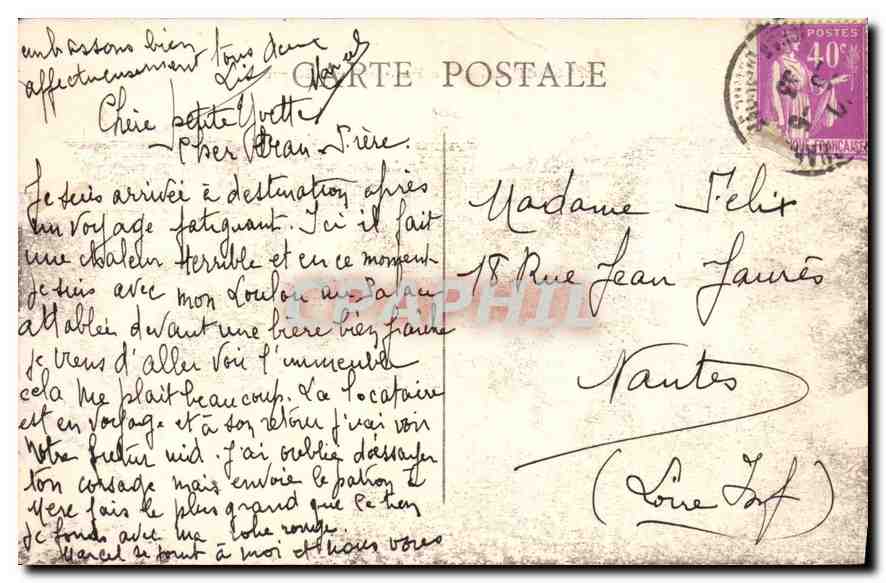 embrassons bien
affectueusement tous deux
Lis Marcel
CARTE POSTALE
POSTES
40c
Chère petite Yvette
Cher Jean-Pierre.
Je suis arrivée à destination après
un voyage fatiguant. Ici il fait
une chaleur terrible et en ce moment
je suis avec mon Loulou
attablée devant une bière bien fraiche
je viens d'aller voir l'immeuble
cela me plait beaucoup. La locataire
est en voyage et à son retour j'irai voir
notre futur nid. J'ai oublié d'essayer
ton corsage mais envoie le patron à
Mère fais le plus grand que le tien
je fonds avec ma robe rouge.
Marcel se joint à moi et nous vous
Madame Felix
18 Rue Jean Jaurès
Nantes
(Loire Inf)
CPAPHIL